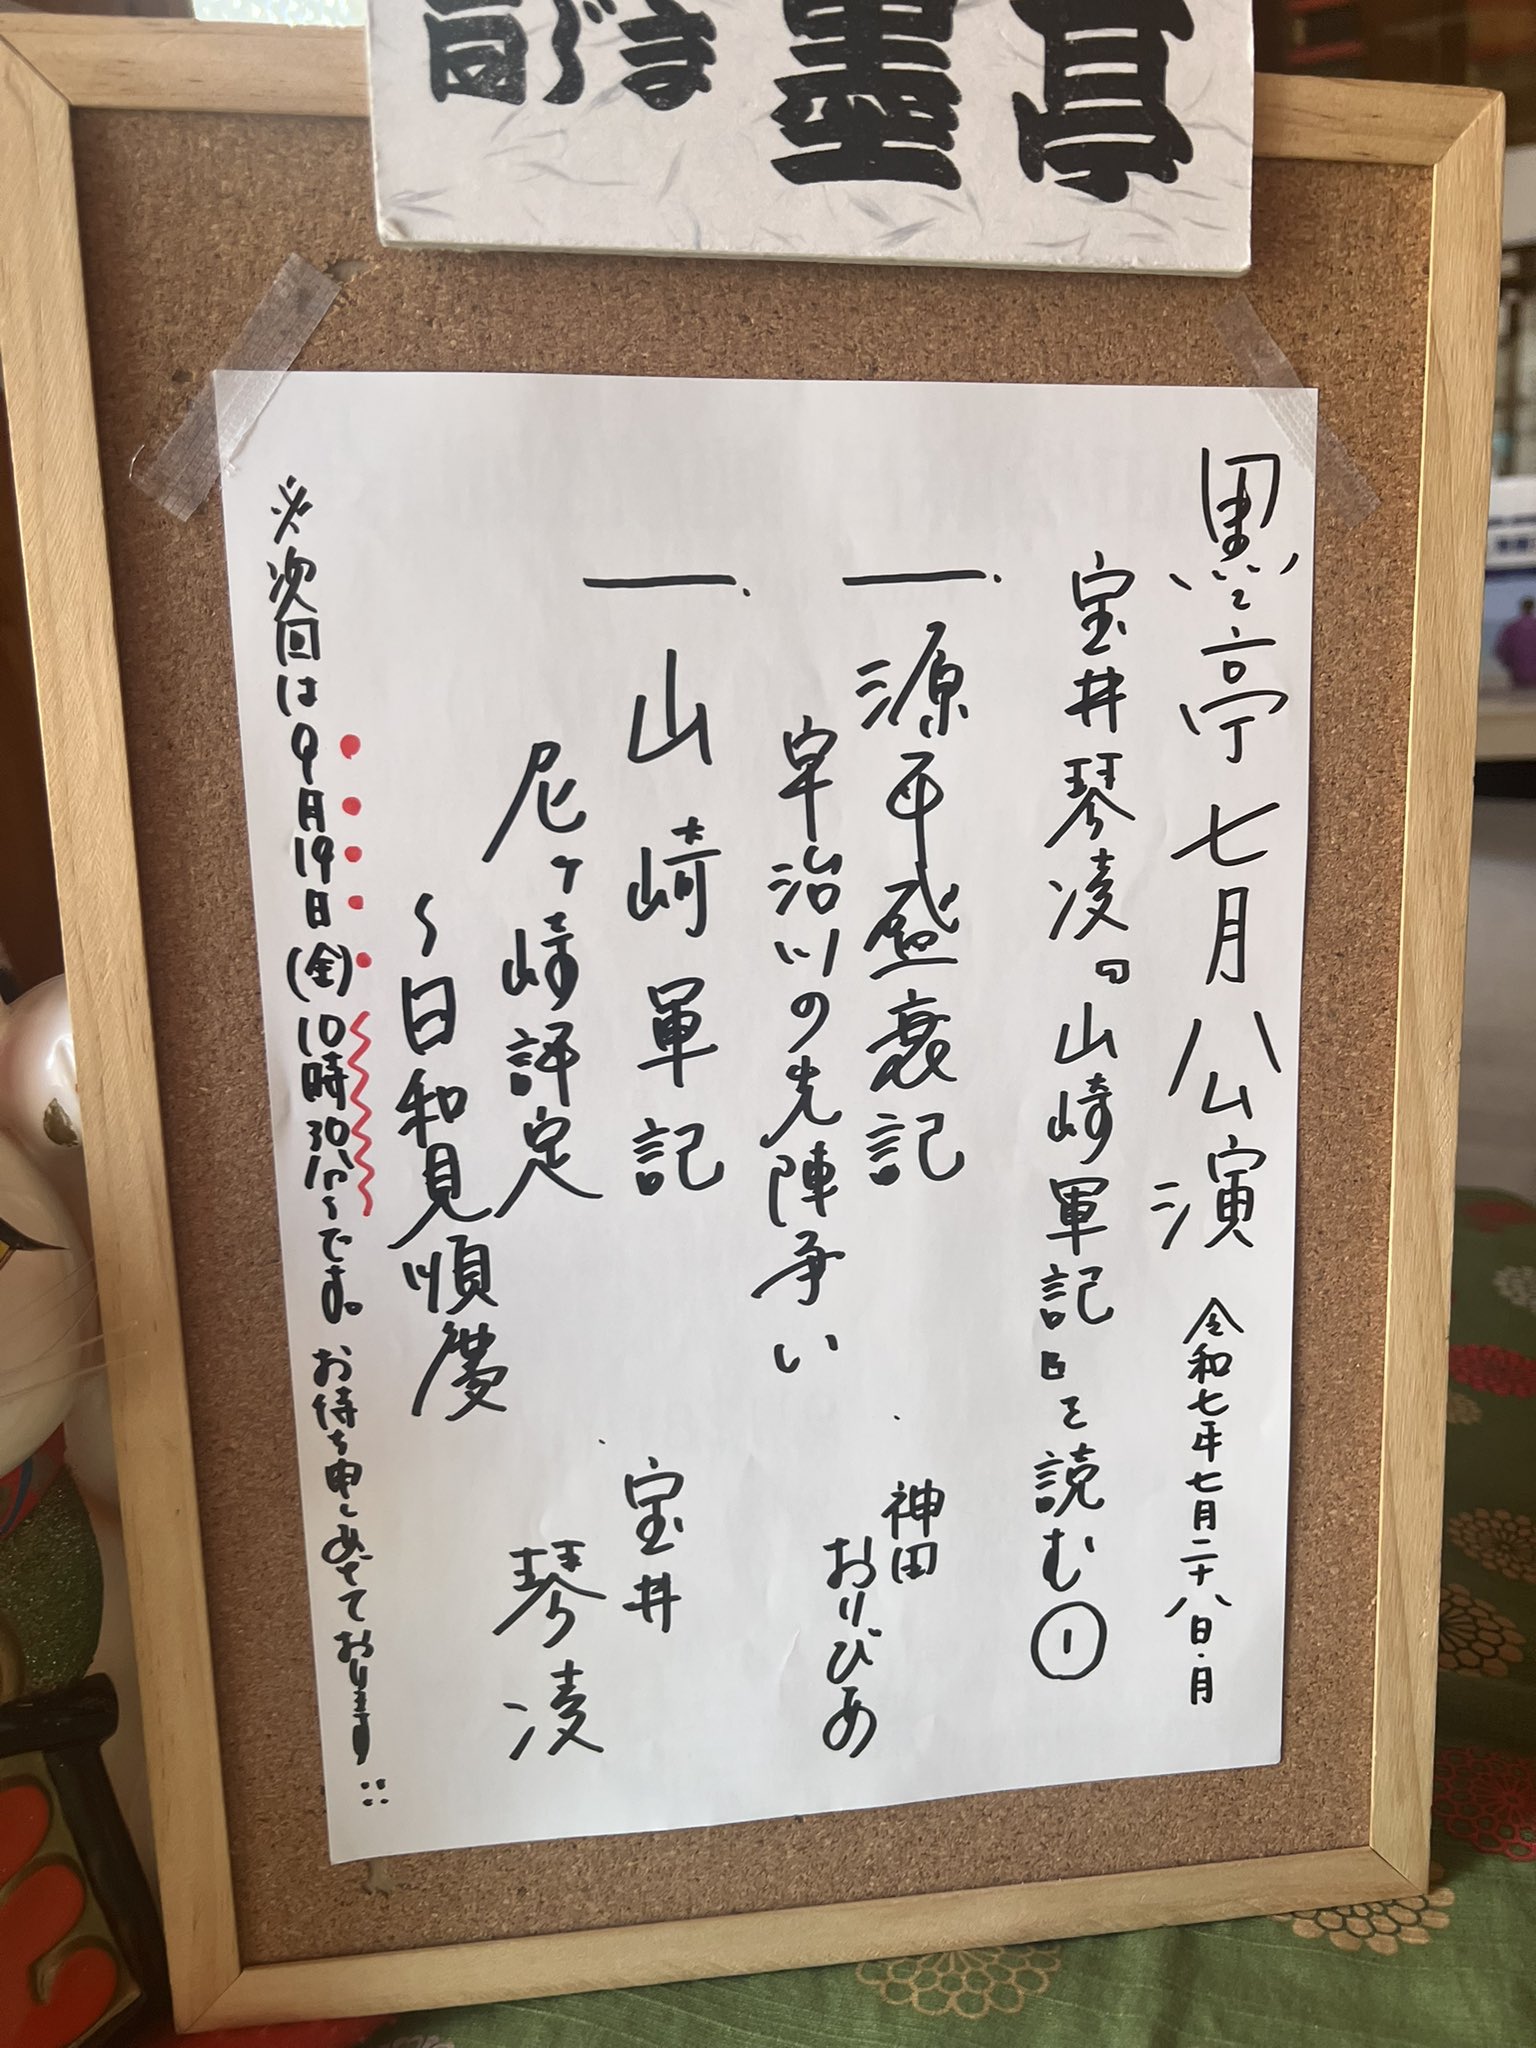 向じま 墨亭
墨亭七月公演 令和七年七月二十八日・月
宝井琴凌『山崎軍記』を読む①
一.源平盛衰記
宇治川の先陣争い
神田
おりびあ
一.山崎軍記
尼ヶ崎評定
〜日和見順慶
宝井
琴凌
※次回は9月19日(金)10時30分〜です。お待ち申しあげております!!